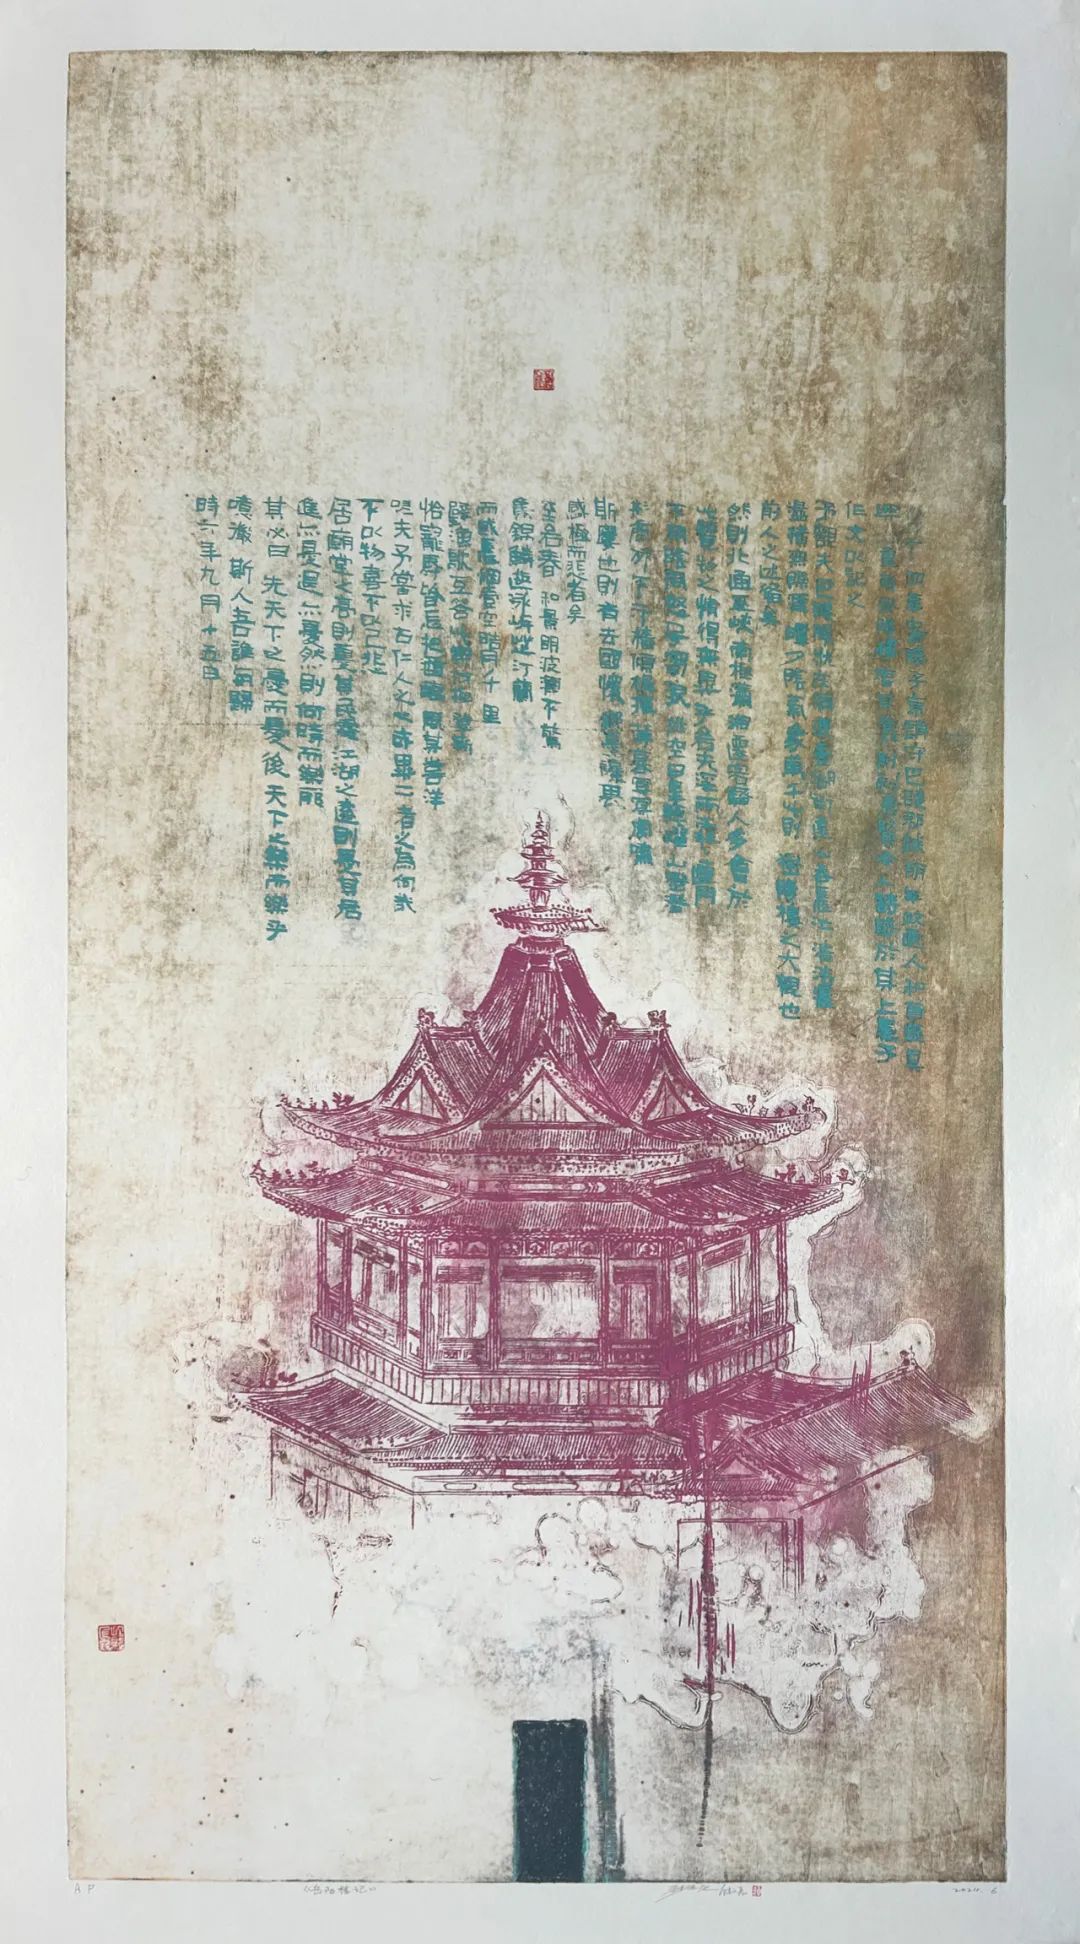 四年春滕子京謫守巴陵郡越明年政通人和百廢具
重修岳陽樓增其舊制刻唐賢今人詩賦於其上屬予
作文以記之
予觀夫巴陵勝狀在洞庭一湖銜遠山吞長江浩浩湯
湯橫無際涯朝夕陰氣象萬千此則岳陽樓之大觀也
前人之述備矣
然則北通巫峽南極瀟湘遷客騷人多會於
此覽物之情得無異乎若夫淫雨霏霏連月
不開陰風怒號濁浪排空日星隱曜山岳潛
形商旅不行檣傾楫摧薄暮冥冥虎嘯
斯樓也則有去國懷鄉憂讒畏
感極而悲者矣
至若春和景明波瀾不驚
集錦鱗游泳岸芷汀蘭
而或長煙一空皓月千里
歌互答此樂何極登斯
怡寵辱皆忘把酒臨風其喜洋
嗟夫予嘗求古仁人之心或異二者之為何哉
不以物喜不以己悲
居廟堂之高則憂其民處江湖之遠則憂其君
進亦憂退亦憂然則何時而樂耶
其必曰先天下之憂而憂後天下之樂而樂乎
噫微斯人吾誰與歸
時六年九月十五日
AP
《岳阳楼记》
2024.6